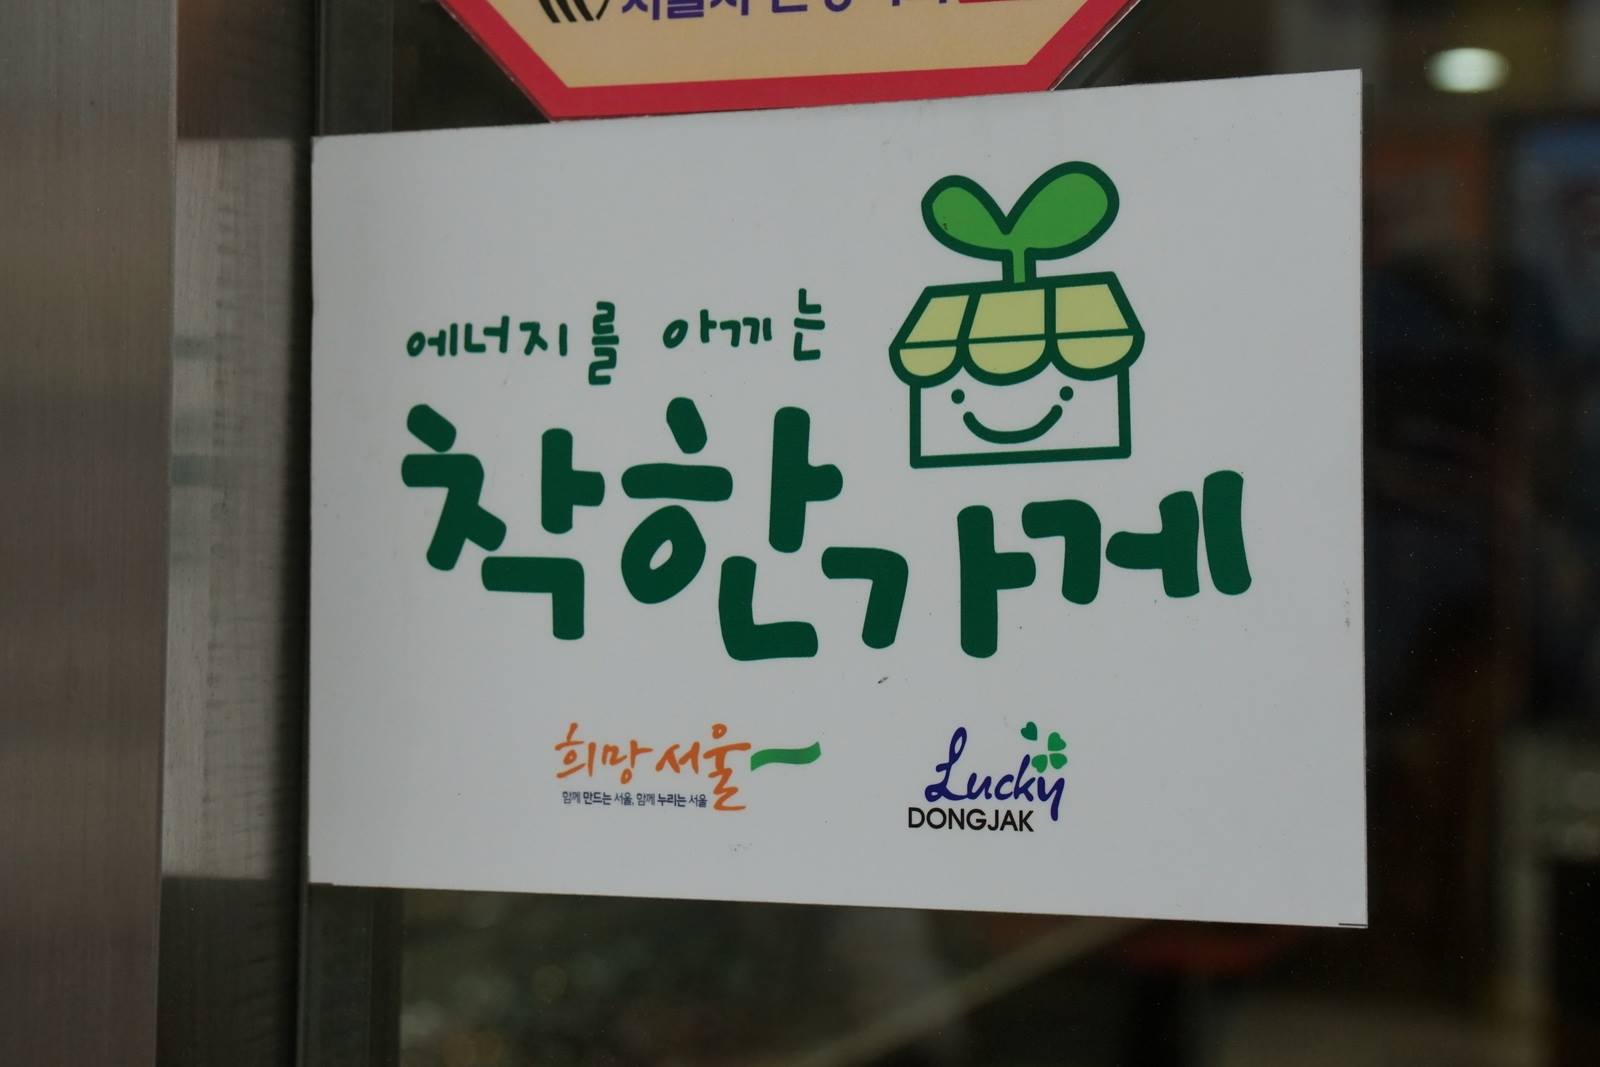 에너지를 아끼는
착한가게
희망서울
함께 만드는 서울, 함께 누리는 서울
Lucky
DONGJAK